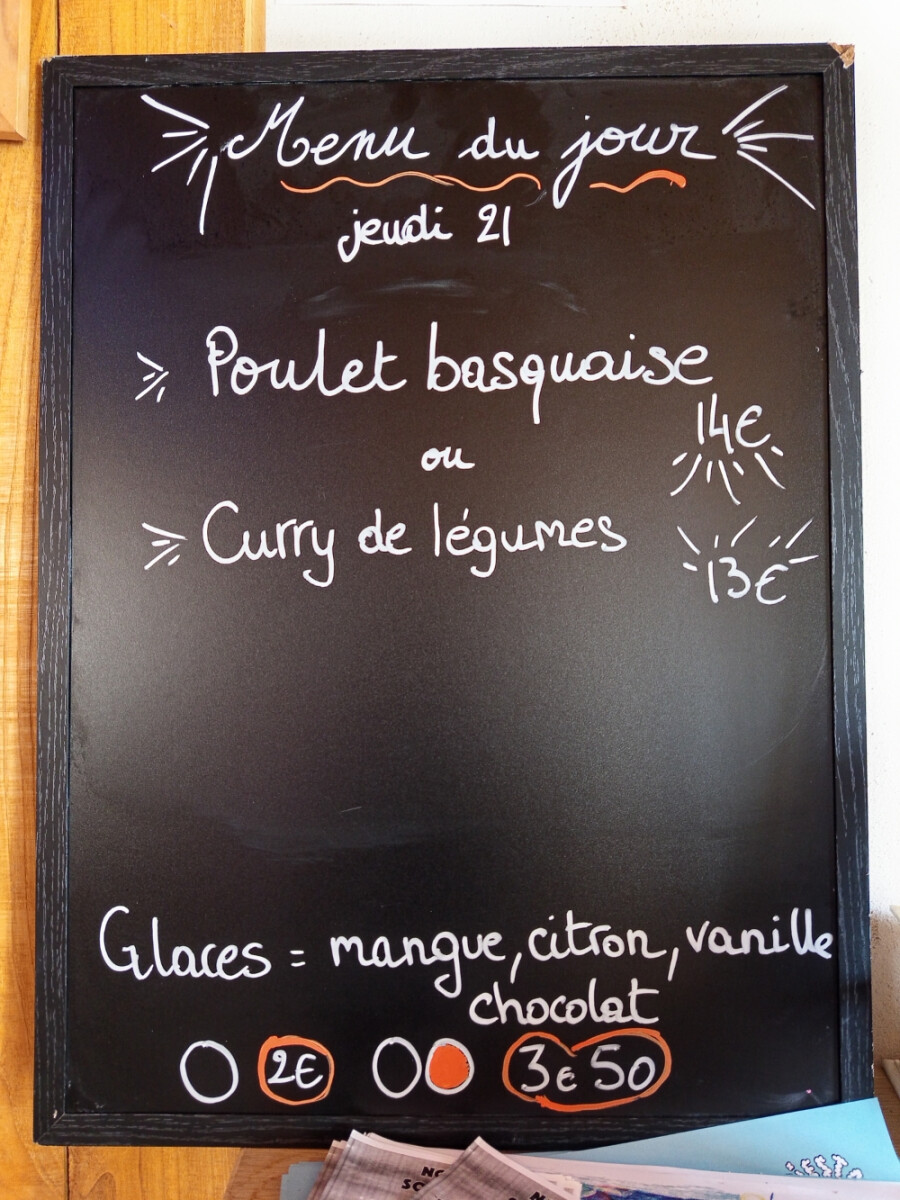 Menu du jour
jeudi 21
Poulet basquaise
14€
ou
Curry de légumes
13€
Glaces = mangue, citron, vanille
chocolat
2€ 3€50